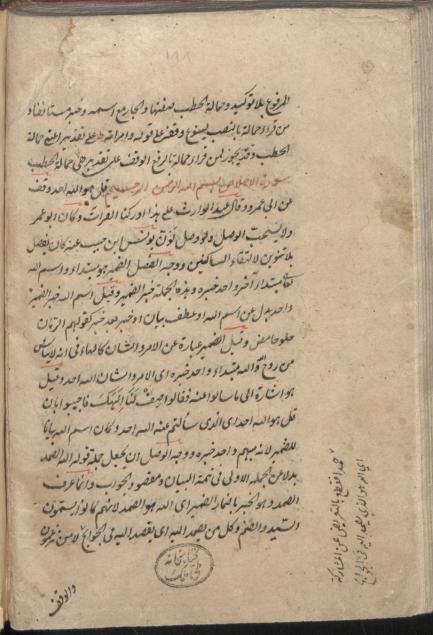 المرفوع بلا توكيد وحمالة الحطب صفتها والجار مع اسمه وخبره مستانفا و
من قراء حمالة بالنصب يسوغ وقفه على قوله وامراته ط على تقدير اعنى حمالة
الحطب وقد يجوز لمن قراء حمالة بالرفع الوقف على تقدير هى حمالة الحطب
سورة الاخلاص بسم الله الرحمن الرحيم قل هو الله احد وقف
عن ابى عمرو وقال عبد الوارث على هذا ادركنا القراء وكان ابو عمرو
ولا يستحب الوصل ولو وصل نون يونس ابن حبيب عنه كان يفصل
بلا تنوين لالتقاء الساكنين ووجه الفصل الضمير هو مبتداء واسم الله
تعالى مبتداء آخر واحد خبره وهذه الجملة خبر الضمير وقيل اسم الله خبر الضمير
واحد بدل من اسم الله او عطف بيان او خبر بعد خبر كقولهم الرمان
حلو حامض وقيل الضمير عبارة عن الامر والشان كالهاء فى انه لا يياس
من روح الله والله مبتداء واحد خبره اى الامر والشان الله احد وقيل
هو اشارة الى ما سالوا عنه فقالوا صف لنا الهك فاجيبوا بان
قل هو الله احد اى الذى سالتم عنه الله احد وكان اسم الله بيانا
للضمير لانه مبهم واحد خبره ووجه الوصل ان يجعل جملة قوله الله الصمد
بدلا عن الجملة الاولى فى تتمة البيان ومقصود الجواب وانما عرف
الصمد وهو الخبر باضمار الضمير اى الله هو الصمد لانهم كانوا يسمون
السيد والصنم وكل من يصمد اليه اى يقصد اليه فى الحوائج لا من غيره
والوقف
اى الله هو الذى يصمد اليه فى الحوائج
كتابخانه